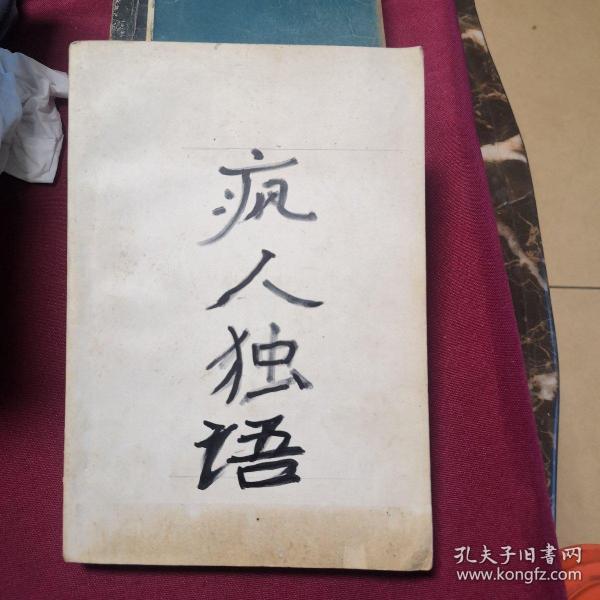 疯人独语
孔夫子旧書网
www.kongfz.com